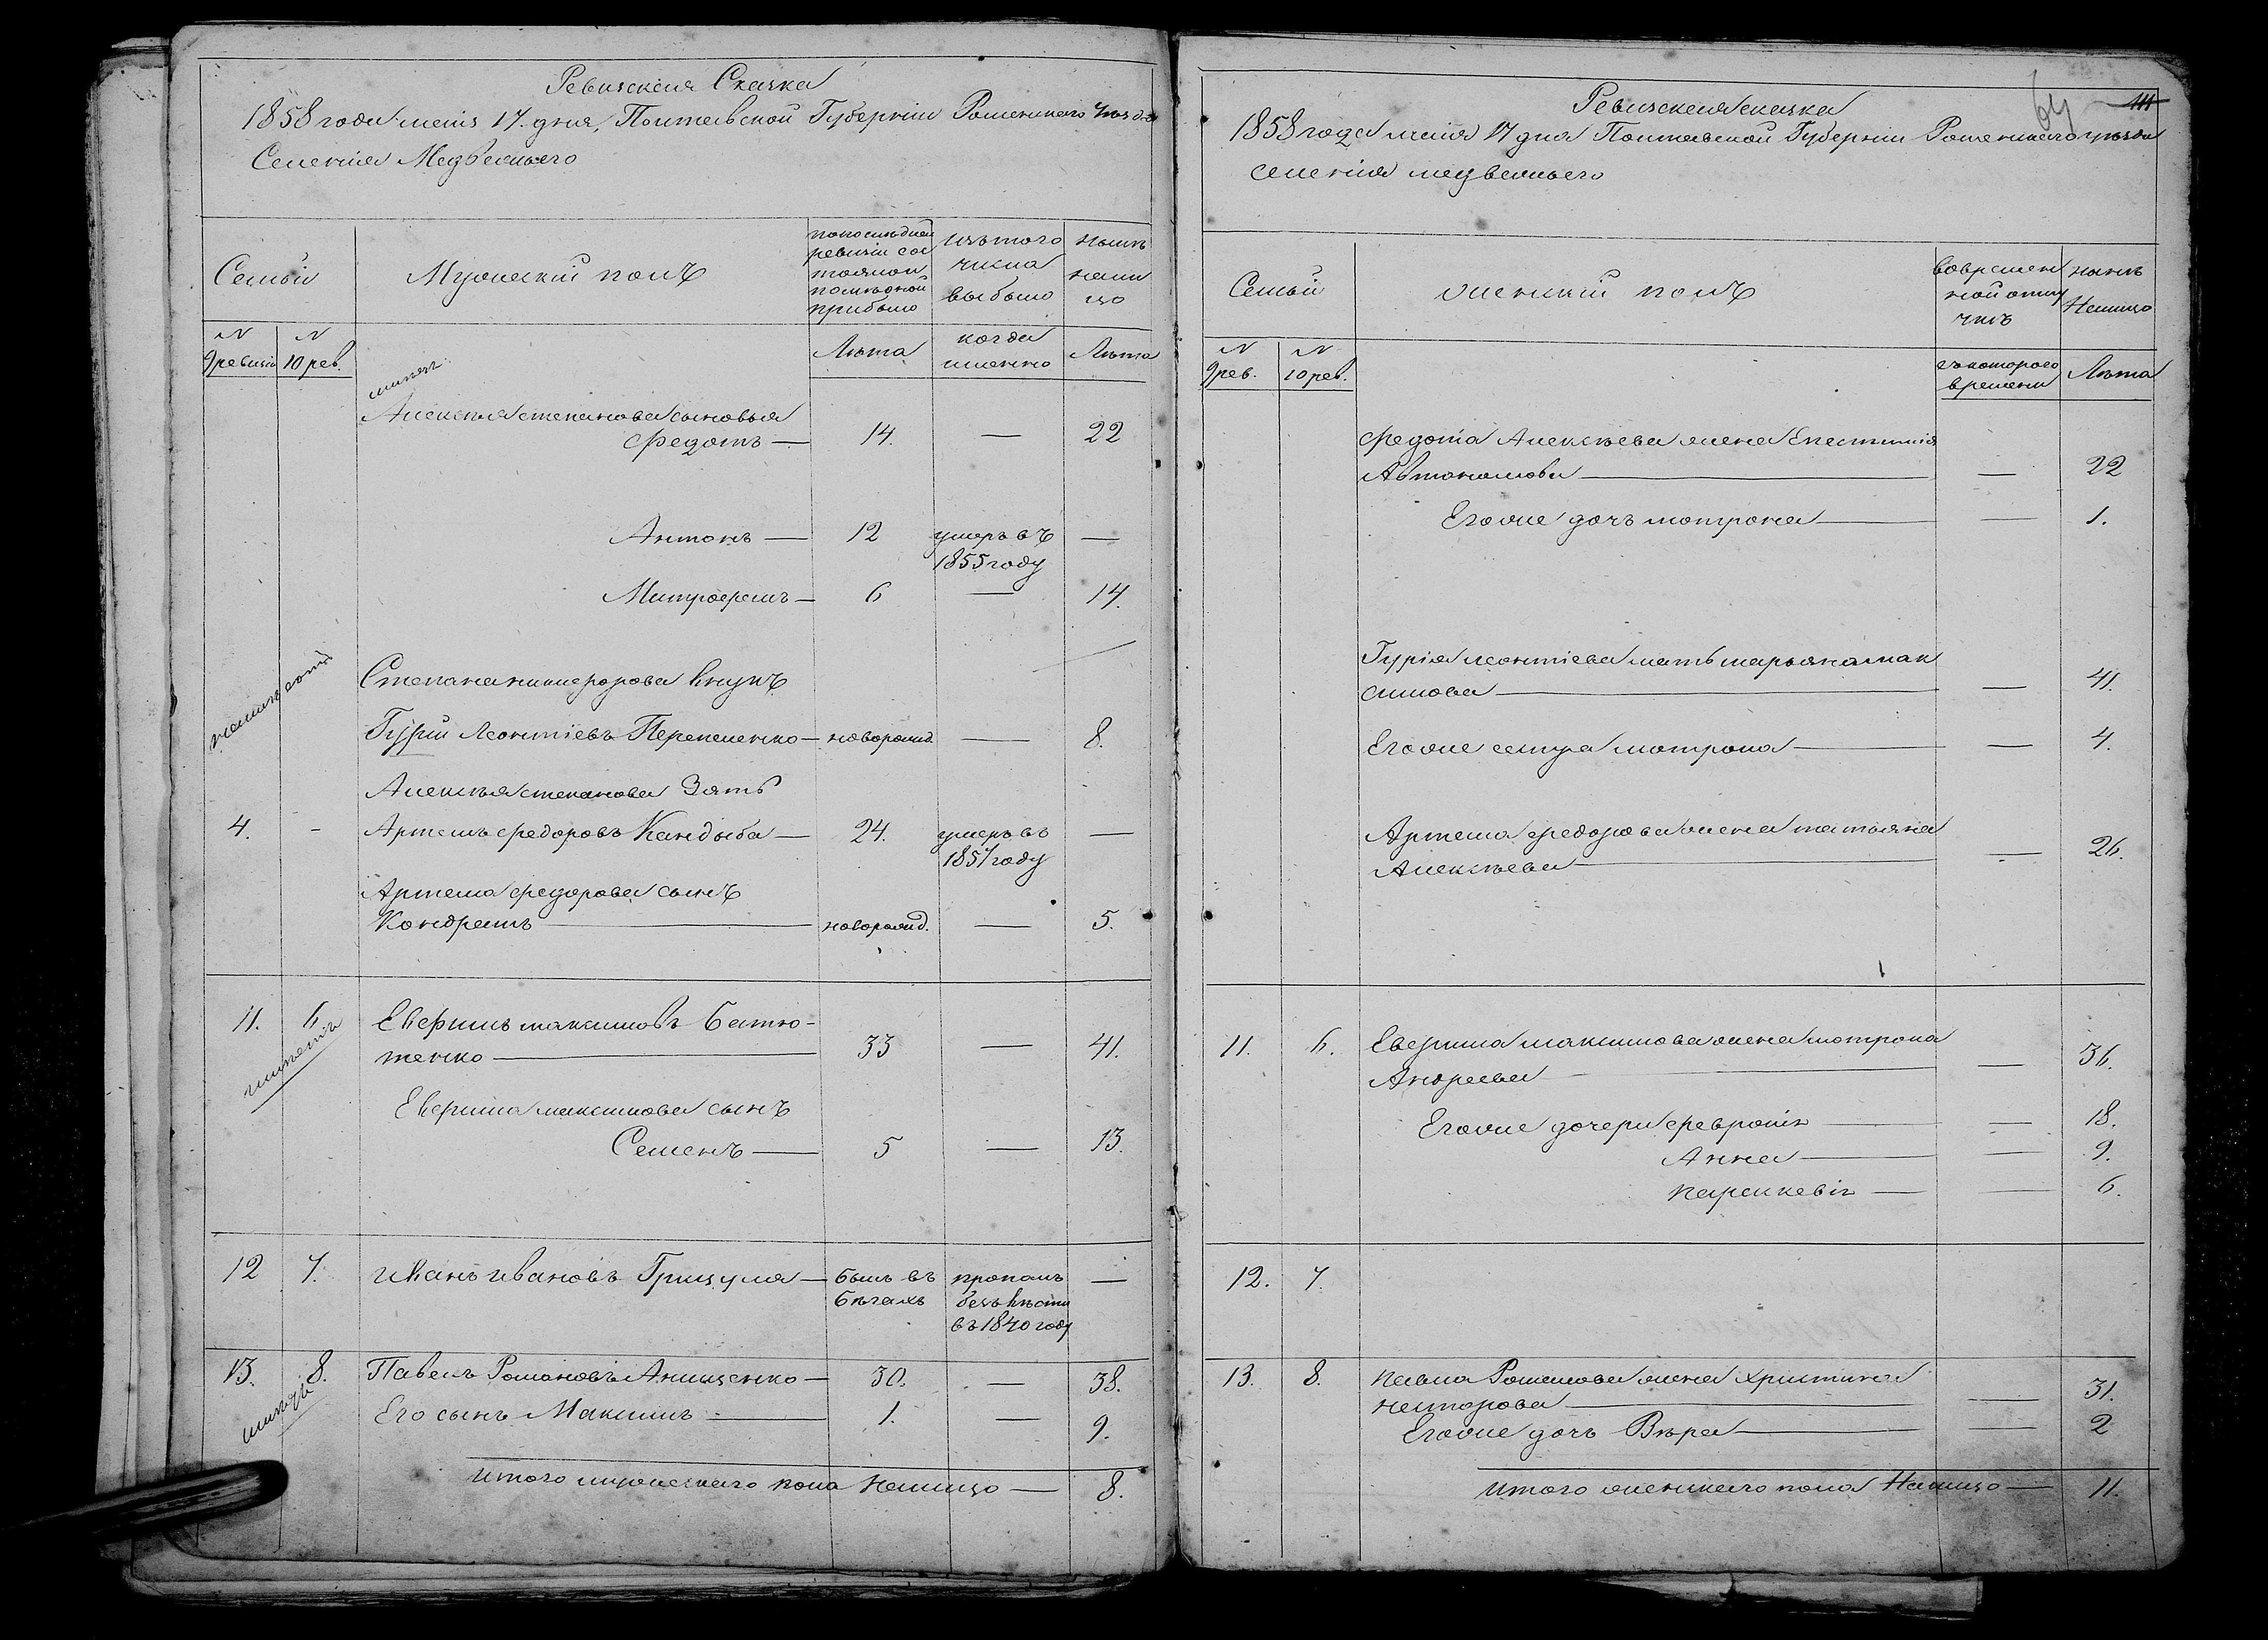 Ревизская Сказка
1858 года маія 17. дня, Полтавской Губерніи Роменского уѣзда
Селенія Медвежьего
Семьи
Мужескій полъ
по последней
ревизіи сос
тояло и
после оной
прибыло
изъ того
числа
выбыло
нынѣ
нали
цо
N
9 ревизіи
N
10 рев.
Лѣта
когда
именно
Лѣта
Алексѣя степанова сыновья
Федотъ — 14. — 22
Антонъ — 12 умеръ въ —
1855 году
Митрофанъ — 6 — 14.
Степана никифорова внукъ
Гурій Леонтіевъ Перепеленко — новорожд. — 8.
Алексѣя степанова Зять
4. - Артемъ федоровъ Кандыба — 24. умеръ въ —
1857 году
Артема федорова сынъ
Кондратъ — новорожд. — 5.
11. 6. Евфимъ максимовъ Батю-
тенко — 33 — 41.
Евфима максимова сынъ
Семенъ — 5 — 13.
12 7. иванъ ивановъ Грицуля — былъ въ пропалъ —
бѣгахъ безъ вѣсти
въ 1840 году
13. 8. Павелъ Романовъ Анищенко — 30. — 38.
Его сынъ Максимъ — 1. — 9.
итого мужеского пола налицо — 8.
64
111
Ревизская сказка
1858 года маія 17 дня Полтавской Губерніи Роменского уѣзда
селенія медвежьего
Семьи
женскій полъ
во времен
ной отлу
чкѣ
нынѣ
Налицо
N
9 рев.
N
10 рев.
съ которого
времени
Лѣта
федота Алексѣева жена Епестимія
Автономова — — 22
Его же дочь мотрона — — 1.
Гурія леонтіева мать марьяна мак
симова — — 41.
Его же сестра мотрона — — 4.
Артема федорова жена татьяна
Алексѣева — — 26.
11. 6. Евфима максимова жена мотрона
Андреева — — 36.
Его же дочери февронія — — 18.
Анна — — 9.
параскевія — — 6.
12. 7.
13. 8. павла Романова жена христина
несторова — — 31.
Его же дочь Вѣра — — 2
итого женского пола Налицо — 11.